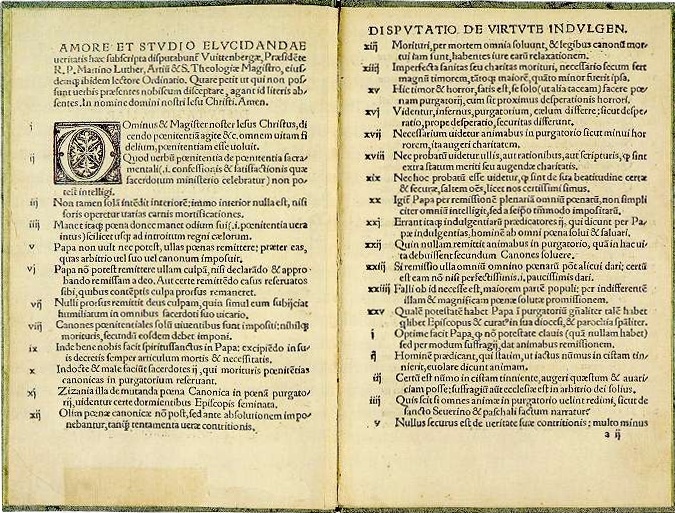 AMORE ET STVDIO ELVCIDANDAE
ueritatis hæc subscripta disputabunť Vuittenbergæ, Præsidēte
R.P. Martino Luther, Artiū & S. Theologiæ Magistro, eius/
demq; ibidem lectore Ordinatio. Quare petit ut qui non pos/
sunt uerbis præsentes nobiscum disceptare, agant id literis ab/
sentes. In nomine domini nostri Iesu Christi. Amen.
i DOminus & Magister noster Iesus Christus, di
cendo pœnitentiā agite &c. omnem uitam fi
delium, pœnitentiam esse uoluit.
ij Quod uerbū pœnitentia de pœnitentia sacra
mentali (.i. confessionis & satisfactionis quæ
sacerdotum ministerio celebratur) non po
test intelligi.
iij Non tamen solā intēdit interiorē; immo interior nulla est, nisi
foris operetur uarias carnis mortificationes.
iiij Manet itaq; pœna donec manet odium sui (.i. pœnitentia uera
intus) scilicet usq; ad introitum regni cælorum.
v Papa non uult nec potest, ullas pœnas remittere; præter eas,
quas arbitrio uel suo uel canonum imposuit.
vj Papa nō potest remittere ullam culpā, nisi declarādo & appro/
bando remissam a deo. Aut certe remittēdo casus reseruatos
sibi, quibus contēptis culpa prorsus remaneret.
vij Nulli prorsus remittit deus culpam, quin simul eum subijciat
humiliatum in omnibus sacerdoti suo uicario.
viij Canones pœnitentiales solū uiuentibus sunt impositi; nihilq;
morituris, secundū eosdem debet imponi.
ix Inde bene nobis facit spiritussanctus in Papa: excipiēdo in su/
is decretis semper articulum mortis & necessitatis.
x Indocte & male faciūt sacerdotes ij, qui morituris pœnitētias
canonicas in purgatorium reseruant.
xj Zizania illa de mutanda pœna Canonica in pœnā purgato/
rij, uidentur certe dormientibus Episcopis seminata.
xij Olim pœnæ canonicæ nō post, sed ante absolutionem impo/
nebantur, tanq̄ tentamenta ueræ contritionis.
DISPVTATIO DE VIRTVTE INDVLGEN.
xiij Morituri, per mortem omnia soluunt, & legibus canonū mor/
tui iam sunt, habentes iure earū relaxationem.
xiiij Imperfecta sanitas seu charitas morituri, necessario secum fert
magnū timorem, tātoq; maiorē, quāto minor fuerit ipsa.
xv Hic timor & horror, satis est, se solo (ut alia taceam) facere pœ/
nam purgatorij, cum sit proximus desperationis horrori.
xvj Videntur, infernus, purgatorium, cælum differre; sicut despe/
ratio, prope desperatio, securitas differunt.
xvij Necessarium uidetur animabus in purgatorio sicut minui hor
rorem, ita augeri charitatem.
xviij Nec probatū uidetur ullis, aut rationibus, aut scripturis, q̄ sint
extra statum meriti seu augendæ charitatis.
xix Nec hoc probatū esse uidetur, q̄ sint de sua beatitudine certæ
& securæ, saltem oēs, licet nos certissimi simus.
xx Igiť Papa per remissionē plenariā omniū pœnarū, non simpli
citer omniū intelligit, sed a seipso tātūmodo impositarū.
xxj Errant itaq; indulgentiarū prædicatores ij, qui dicunt per Pa/
pæ indulgentias, hominē ab omni pœna solui & saluari.
xxij Quin nullam remittit animabus in purgatorio, quā in hac ui/
ta debuissent secundum Canones soluere.
xxiij Si remissio ulla omniū omnino pœnarū pōt alicui dari; certū
est eam nō nisi perfectissimis .i. paucissimis dari.
xxiiij Falli ob id necesse est, maiorem partē populi; per indifferentē
illam & magnificam pœnæ solutæ promissionem.
xxv Qualē potestatē habet Papa ī purgatoriū gn̄aliter talē habet
q̄libet Episcopus & curatꝰ in sua diocesi, & parochia sp̄āliter.
i Optime facit Papa, q̄ nō potestate clauis (quā nullam habet)
sed per modum suffragij, dat animabus remissionem.
ij Hominē prædicant, qui statim, ut iactus nūmus in cistam tin/
nierit, euolare dicunt animam.
iij Certū est nūmo in cistam tinniente, augeri quæstum & auari/
ciam posse; suffragiū aūt ecclesiæ est in arbitrio dei solius.
iiij Quis scit si omnes animæ in purgatorio uelint redimi, sicut de
sancto Seuerino & paschali factum narratur
v Nullus securus est de ueritate suæ contritionis; multo minus
a ij